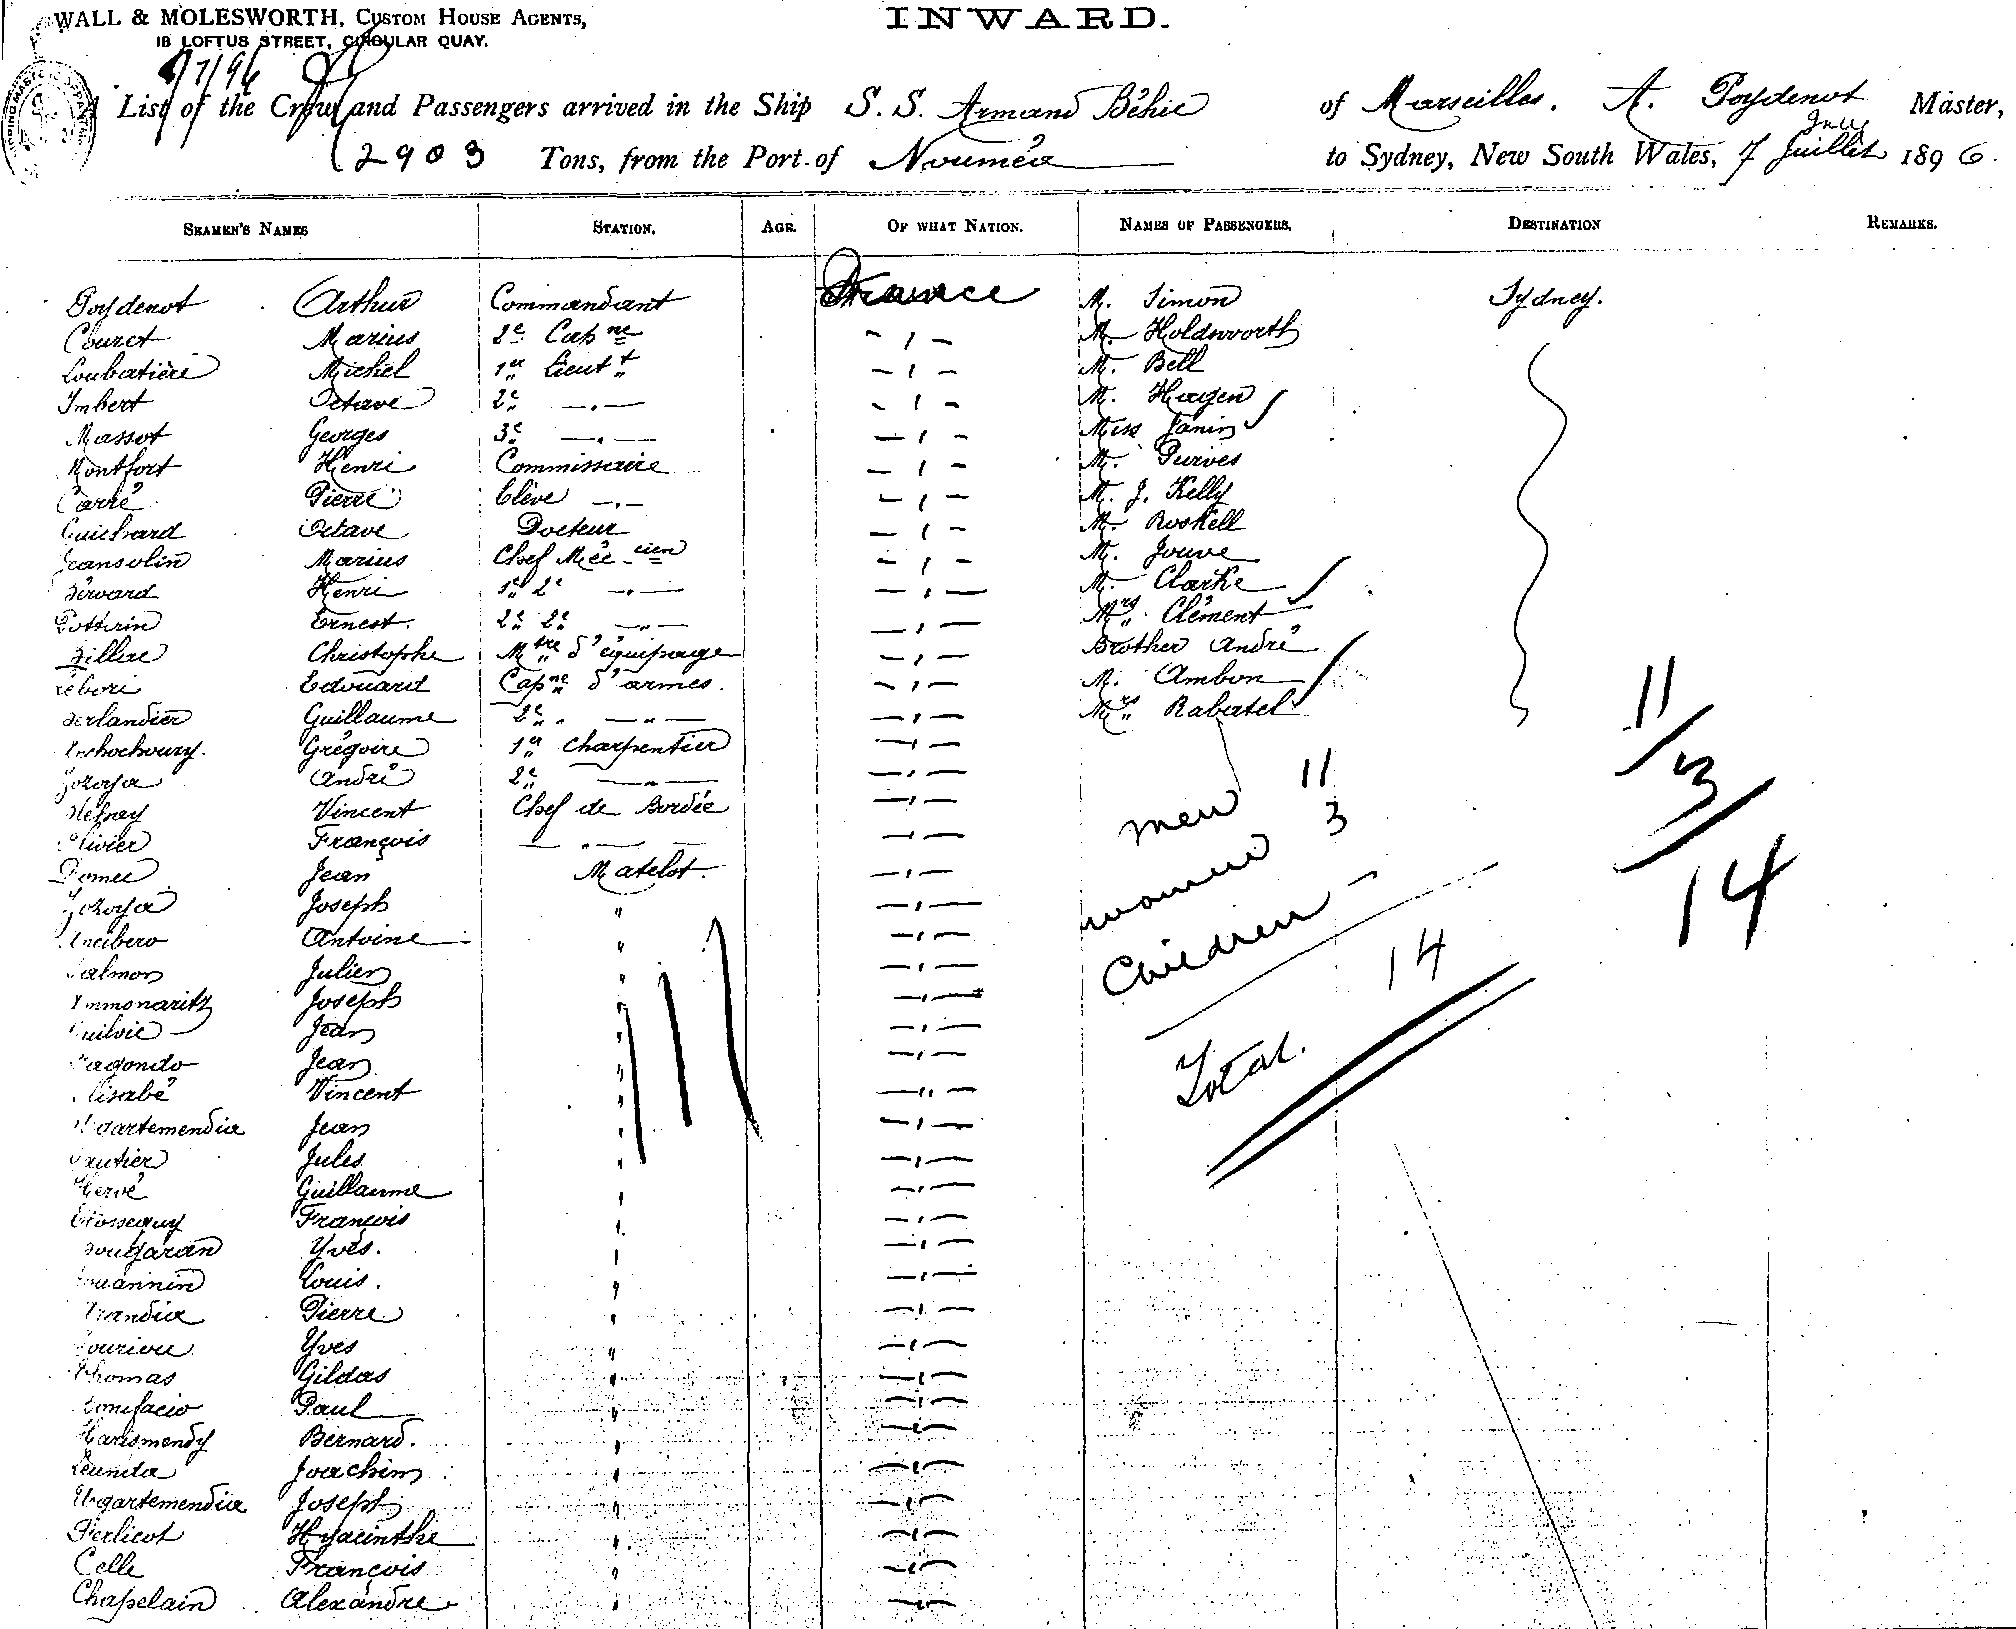 WALL & MOLESWORTH, CUSTOM HOUSE AGENTS,
18 LOFTUS STREET, CIRCULAR QUAY.
INWARD.
7/7/96
List of the Crew and Passengers arrived in the Ship S.S. Armand Béhic of Marseilles. A. Poydenot Master,
2903 Tons, from the Port of Nouméa to Sydney, New South Wales, 7 Juillet July 1896.
SEAMEN'S NAMES STATION. AGE. OF WHAT NATION. NAMES OF PASSENGERS. DESTINATION REMARKS.
Poydenot Arthur Commandant France M. Simon Sydney.
Couret Marius 2e Capne " M. Holdsworth
Loubatière Michel 1er Lieutt " M. Bell
Imbert Octave 2e " " M. Hagen
Massot Georges 3e " " Miss Janin
Montfort Henri Commissaire " M. Purves
Carré Pierre Elève " " M. J. Kelly
Guichard Octave Docteur " M. Roskell
Jeansolin Marius Chef Méc-cien " M. Jouve
Henri 1er 2e " " M. Clarke
Ernest. 2e 2e " " Mrs Clément
Christophe Mtre d'équipage " Brother André
Edouard Capne d'armes. " M. Ambon
Guillaume 2e " " Mrs Rabatel
Grégoire 1er Charpentier "
Zozoya André 2e " "
Vincent Chef de Bordée "
Olivier François " "
Jean Matelot. "
Zozoya Joseph " "
Antoine " "
Salmon Julien " "
Joseph " "
Jean " "
Jean " "
Vincent " "
Ugartemendia Jean " "
Gautier Jules " "
Hervé Guillaume " "
Elosseguy François " "
Yves. " "
Louis. " "
Pierre " "
Yves " "
Thomas Gildas " "
Bonifacio Paul " "
Harismendy Bernard. " "
Joachim " "
Ugartemendia Joseph " "
Perlicot Hyacinthe " "
Celle François " "
Chapelain Alexandre " "
men 11
women 3
Children -
Total. 14
11
/3
14